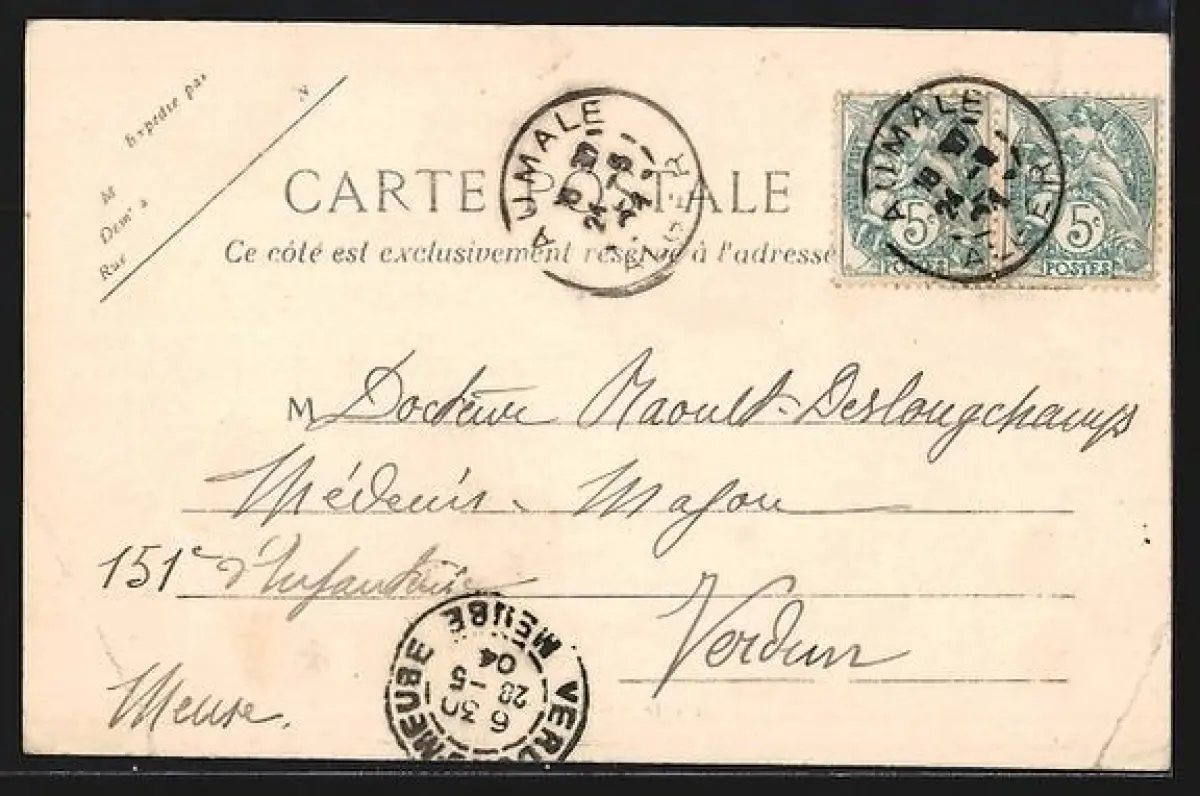 Expédié par
M N
Demt à
Rue
CARTE POSTALE
Ce côté est exclusivement réservé à l'adresse
AUMALE
24 -5
ALGER
AUMALE
24 -5
ALGER
5c 5c
POSTES POSTES
M Docteur Raoult-Deslongchamps
Médecin-Major
151e d'Infanterie
Verdun
Meuse.
VERDUN MEUSE
6 30
28 -5
04